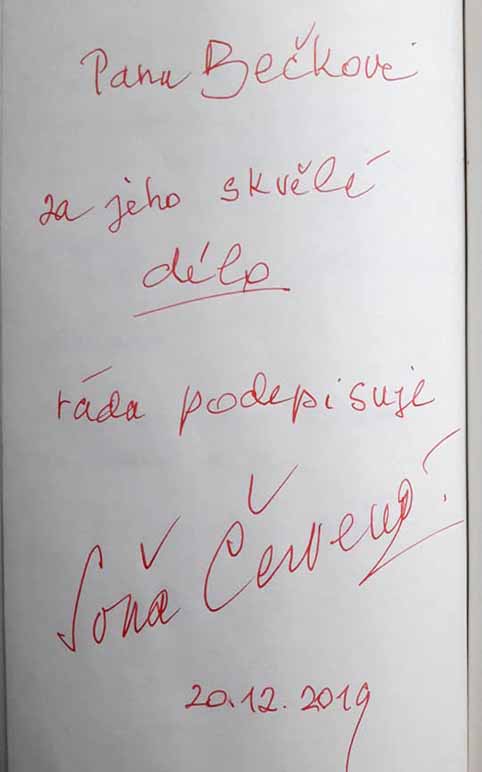 Panu Bečkovi
za jeho skvělé
dílo
ráda podepisuje
Soňa Červená
20.12.2019